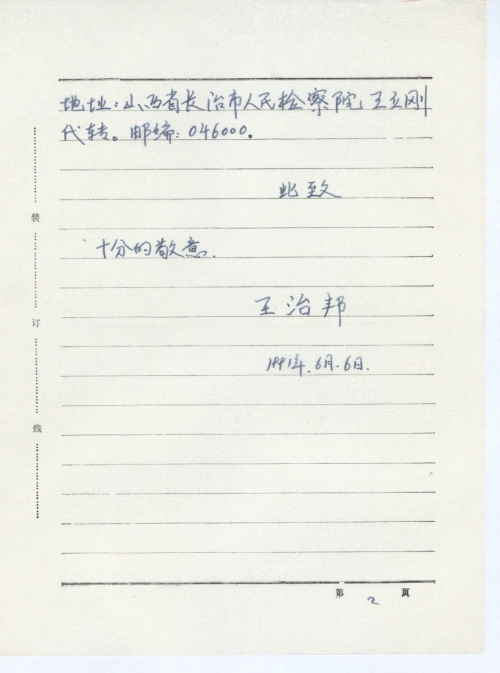 地址：山西省长治市人民检察院王立刚
代转。邮编：046000。
此致
十分的敬意.
王治邦
1991年.6月.6日.
装
订
线
第 2 页